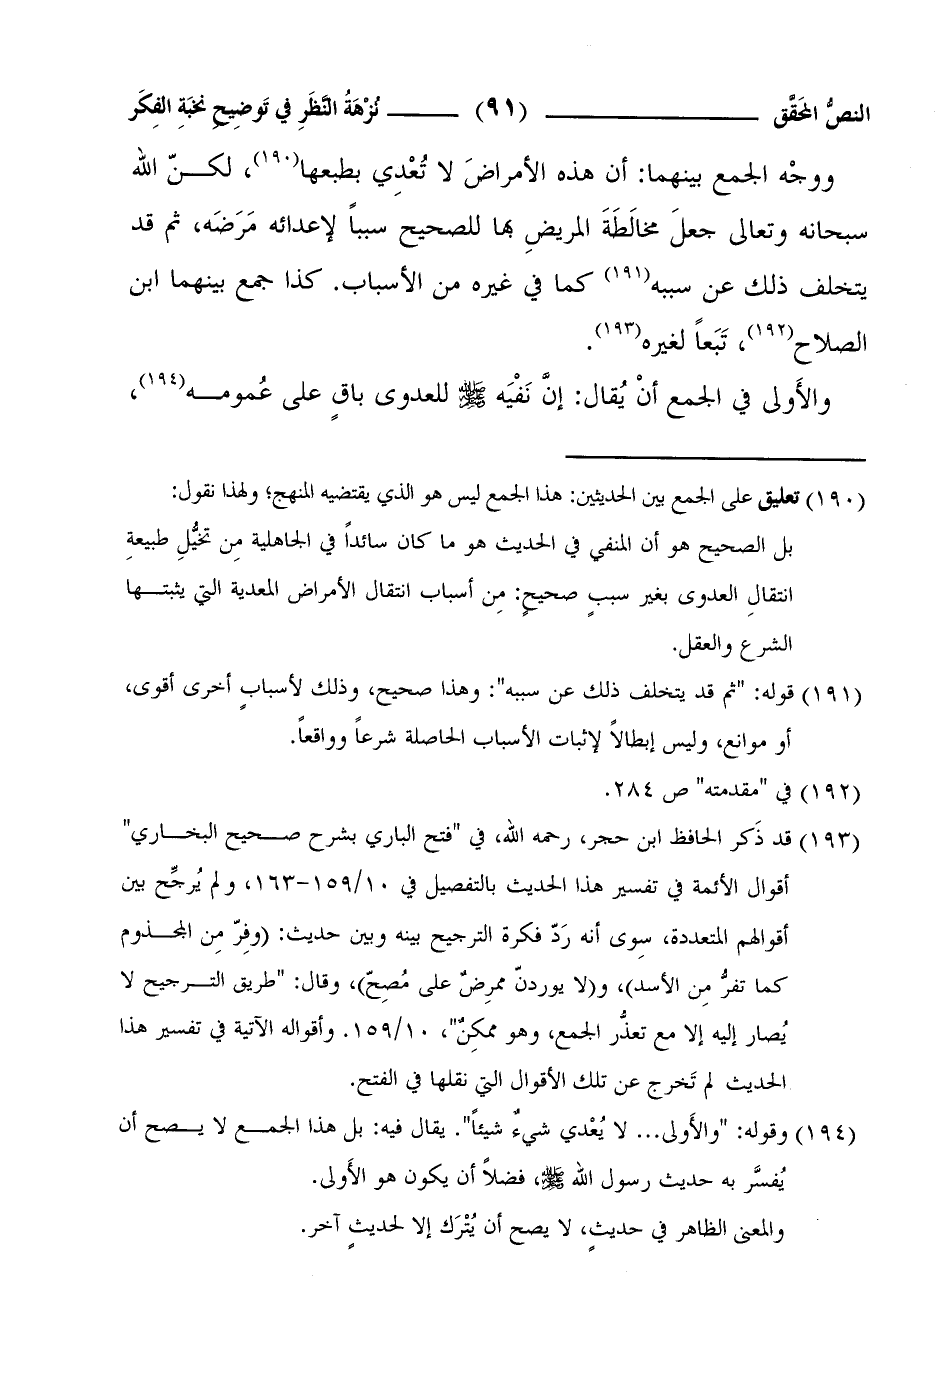 النصُّ المحَقَّق ــــــــــــــــــــ (٩١) ــــــــــــ نُزْهَةُ النَّظَرِ في تَوضِيحِ نخبَةِ الفِكَر
ووجْه الجمع بينهما: أن هذه الأمراضَ لا تُعْدِي بطبعها(١٩٠)، لكـــنّ الله
سبحانه وتعالى جعلَ مخالَطَةَ المريضِ بها للصحيح سبباً لإعدائه مَرَضَه، ثم قد
يتخلف ذلك عن سببه(١٩١) كما في غيره من الأسباب. كذا جمع بينهما ابن
الصلاح(١٩٢)، تَبَعاً لغيره(١٩٣).
والأَولى في الجمع أنْ يُقال: إنَّ نَفْيَه ﷺ للعدوى باقٍ على عُمومـــه(١٩٤)،
(١٩٠) تعليق على الجمع بين الحديثين: هذا الجمع ليس هو الذي يقتضيه المنهج؛ ولهذا نقول:
بل الصحيح هو أن المنفي في الحديث هو ما كان سائداً في الجاهلية مِن تخيُّلِ طبيعةِ
انتقالِ العدوى بغير سببٍ صحيحٍ: مِن أسباب انتقال الأمراض المعدية التي يثبتـــها
الشرع والعقل.
(١٩١) قوله: "ثم قد يتخلف ذلك عن سببه": وهذا صحيح، وذلك لأسبابٍ أخرى أقوى،
أو موانع، وليس إبطالاً لإثبات الأسباب الحاصلة شرعاً وواقعاً.
(١٩٢) في "مقدمته" ص ٢٨٤.
(١٩٣) قد ذَكر الحافظ ابن حجر، رحمه الله، في "فتح الباري بشرح صـــحيح البخـــاري"
أقوال الأئمة في تفسير هذا الحديث بالتفصيل في ١٥٩/١٠-١٦٣، ولم يُرجِّح بين
أقوالهم المتعددة، سِوى أنه رَدّ فكرة الترجيح بينه وبين حديث: (وفِرّ مِن المجـــذوم
كما تفرُّ مِن الأسد)، و(لا يوردنّ ممرِضٌ على مُصِحّ)، وقال: "طريق التـــرجيح لا
يُصار إليه إلا مع تعذُّر الجمع، وهو ممكنٌ"، ١٥٩/١٠. وأقواله الآتية في تفسير هذا
الحديث لم تَخرج عن تلك الأقوال التي نقلها في الفتح.
(١٩٤) وقوله: "والأَولى... لا يُعْدي شيءٌ شيئاً". يقال فيه: بل هذا الجمـــع لا يـــصح أن
يُفسَّر به حديث رسول الله ﷺ، فضلاً أن يكون هو الأَولى.
والمعنى الظاهر في حديثٍ، لا يصح أن يُتْرَك إلا لحديثٍ آخر.